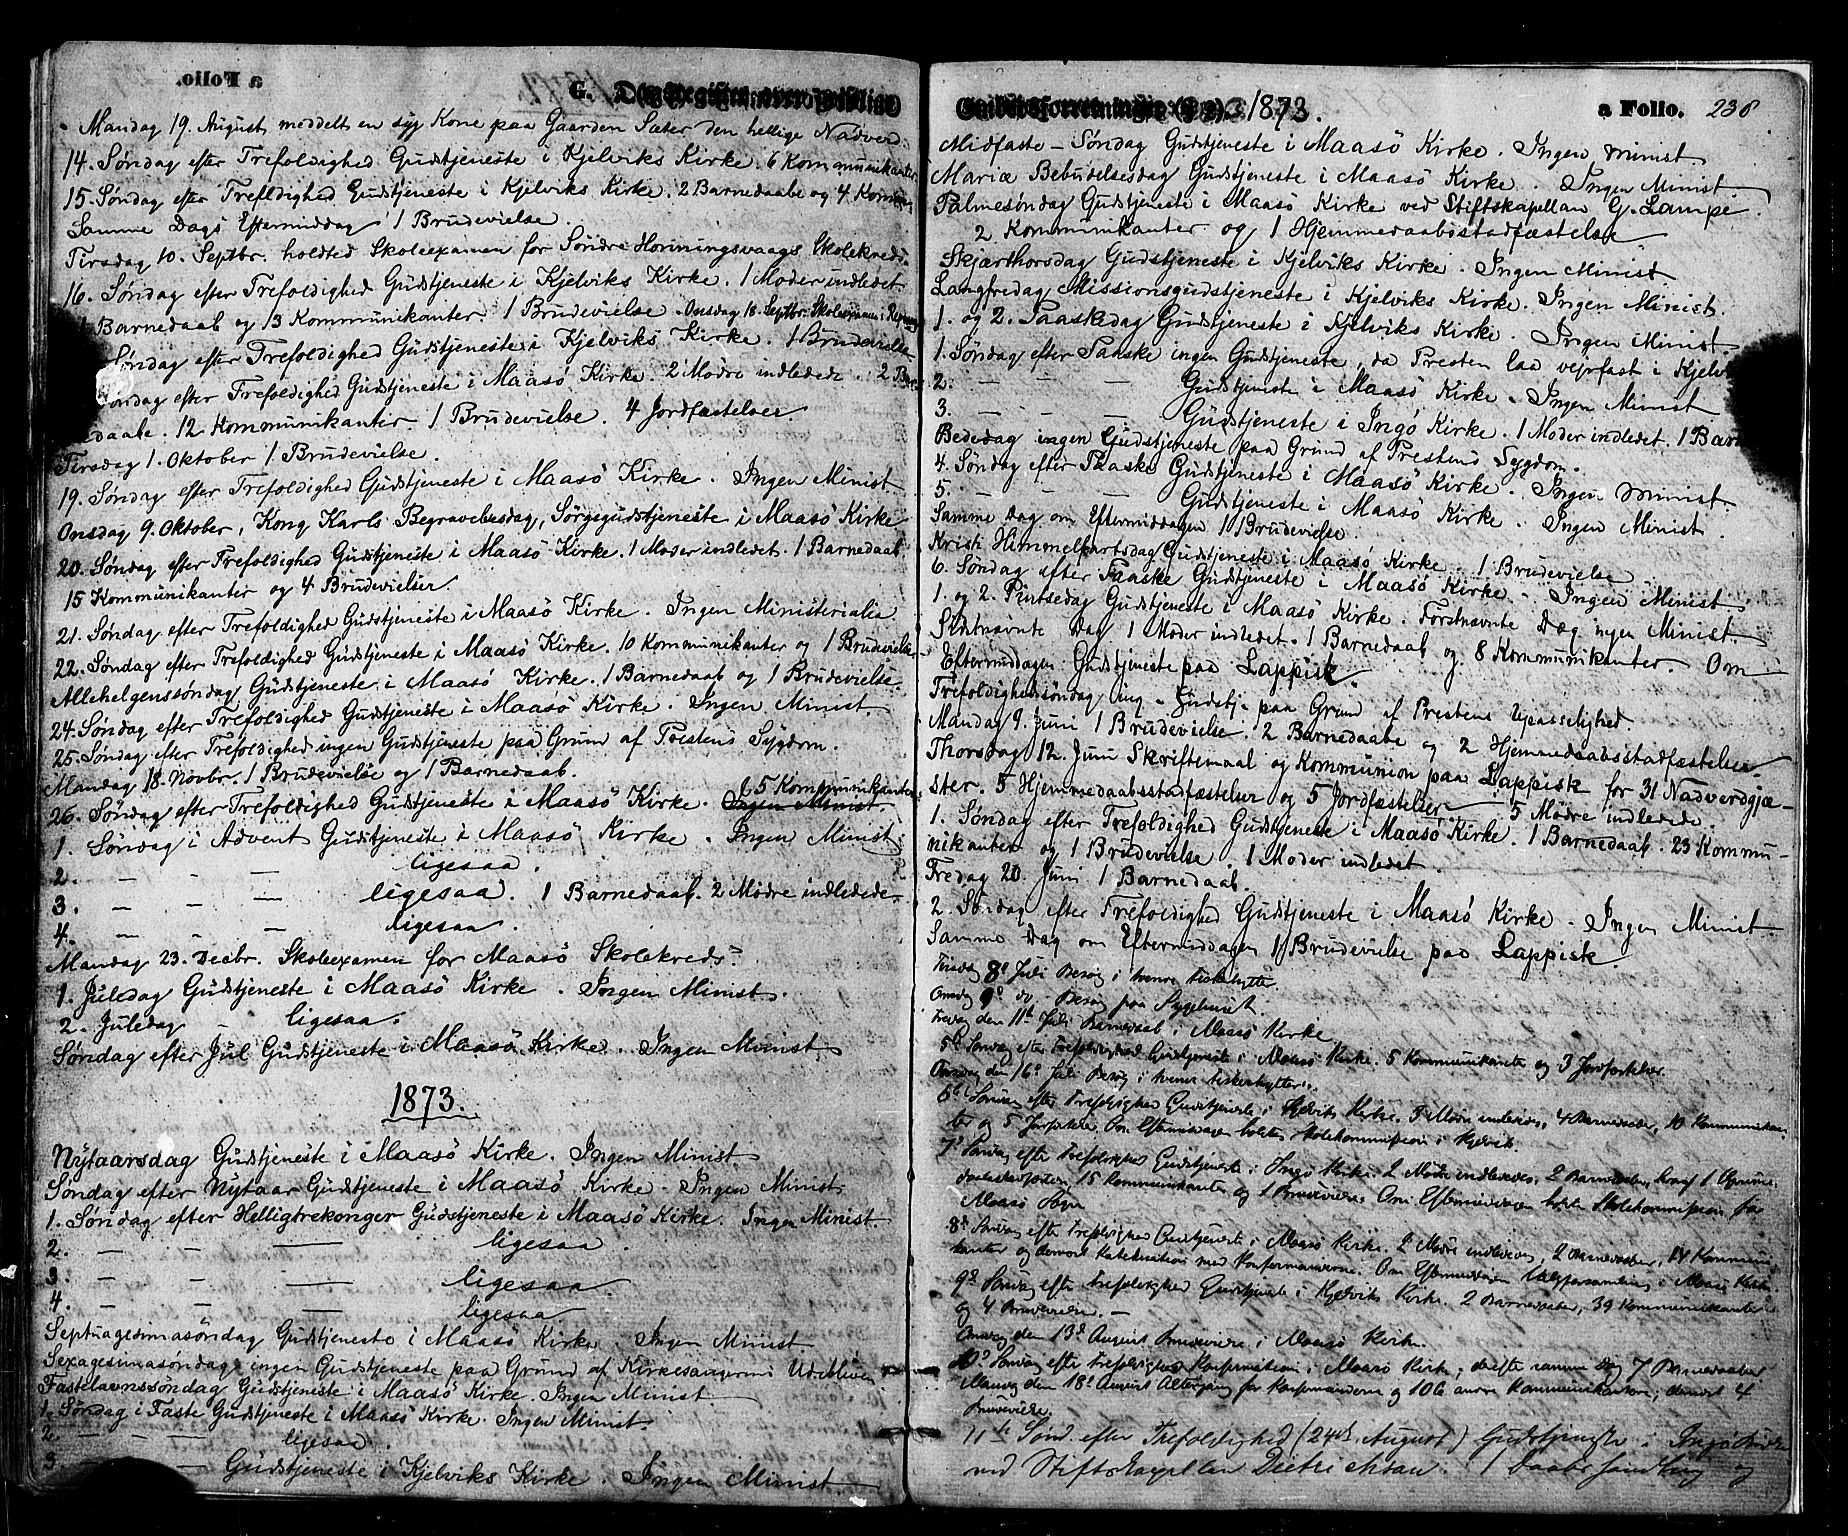 a Folio.
G. Dag-Register over geistlige
Mandag 19. August, meddelt en syg Kone paa Gaarden Sæter den hellige Nadver.
14. Søndag efter Trefoldighed Gudstjeneste i Kjelviks Kirke. 6 Kommunikanter.
15. Søndag efter Trefldighed Gudstjeneste i Kjelviks Kirke. 2 Barnedaabe og 4 Komm.
Samme Dags Eftermiddag 1 Brudevielse.
Tirsdag 10. Septbr. holdted Skoleexamen for Søndre Honningsvaags Skolekreds.
16. Søndag efter Trefoldighed Gudstjeneste i Kjelviks Kirke. 1 Moder indledet
Barnedaab og 13 Kommunikanter. 1 Brudevielse. Onsdag 18. Septbr. Skoleexamen i
Søndag efter Trefoldighed Gudstjeneste i Kjelviks Kirke. 1 Brudevielse
Søndag efter Trefoldighed Gudstjeneste i Maasö Kirke. 2 Mødre indledede. 2 Bar-
nedaabe. 12 Kommunikanter 1 Brudevielse. 4 Jordfæstelser
Tirsdag 1. Oktober 1 Brudevielse.
19. Søndag efter Trefoldighed Gudstjeneste i Maasö Kirke. Ingen Minist.
Onsdag 9. Oktober, Kong Karls Begravelsesdag, Sørgegudstjeneste i Maasö Kirke
20. Søndag efter Trefoldighed Gudstjeneste i Maasö Kirke. 1 Moder indledet. 1 Barnedaab
15 Kommunikanter og 4 Brudevielser.
21. Søndag efter Trefoldighed Gudstjeneste i Maasö Kirke. Ingen Ministerialia.
22. Søndag efter Trefoldighed Gudstjeneste i Maasö Kirke. 10 Kommunikanter og 1 Brudevielse
Allehelgenssøndag Gudstjeneste i Maasö Kirke. 1 Barnedaab og 1 Brudevielse.
24. Søndag efter Trefoldighed Gudstjeneste i Maasö Kirke. Ingen Minist.
25. Søndag efter Trefoldighed ingen Gudstjeneste paa Grund af Prestens Sygdom.
Mandag 18. Novbr. 1 Brudevielse og 1 Barnedaab.
26. Søndag efter Trefoldighed Gudstjeneste i Maasö Kirke. 5 Kommunikanter Ingen Minist.
1. Søndag i Advent Gudstjeneste i Maasö Kirke. Ingen Minist
2. — — — ligesaa.
3. — — — ligesaa. 1 Barnedaab. 2 Mødre indledede
4. — — — ligesaa.
Mandag 23. Decbr. Skoleexamen for Maasö Skolekreds.
1. Juledag Gudstjeneste i Maasö Kirke. Ingen Minist.
2. Juledag ligesaa.
Søndag efter Jul Gudstjeneste i Maasö Kirke. Ingen Minist
1873.
Nytaarsdag Gudstjeneste i Maasö Kirke. Ingen Minist.
Søndag efter Nytaar Gudstjeneste i Maasö Kirke. Ingen Minist.
1. Søndag efter Helligtrekonger Gudstjeneste i Maasö Kirke. Ingen Minist
2. — — — ligesaa.
3. — — — ligesaa.
4. — — — ligesaa
Septuagesimasøndag Gudstjeneste i Maasö Kirke. Ingen Minist
Sexagesimasøndag ingen Gudstjeneste paa Grund af Kirkesangerens Udebliven
Fastelavnssøndag Gudstjeneste i Maasö Kirke. Ingen Minist.
1. Søndag i Faste Gudstjeneste i Maasö Kirke. Ingen Minist.
2. — — — ligesaa.
3 — Gudstjeneste i Kjelviks Kirke. Ingen Minist.
1873.
a Folio. 238
Midfaste-Søndag Gudstjeneste i Maasö Kirke. Ingen Minist
Mariæ Bebudelsesdag Gudstjeneste i Maasö Kirke. Ingen Minist
Palmesøndag Gudstjeneste i Maasö Kirke ved Stiftskapellan G. Lampe.
2 Kommunikanter og 1 Hjemmedaabsstadfæstelse
Skjærthorsdag Gudstjeneste i Kjelviks Kirke. Ingen Minist.
Langfredag Missionsgudstjeneste i Kjelviks Kirke. Ingen Minist.
1. og 2. Paaskedag Gudstjeneste i Kjelviks Kirke. Ingen Minist.
1. Søndag efter Paaske ingen Gudstjeneste, da Presten laa vejrfast i Kjelv
2. — — — Gudstjeneste i Maasö Kirke. Ingen Minist
3. — — — Gudstjeneste i Ingö Kirke. 1 Moder indledet. 1 Barn
Bededag ingen Gudstjeneste paa Grund af Prestens Sygdom.
4. Søndag efter Paaske Gudstjeneste i Maasö Kirke. Ingen Minist.
5. — — — Gudstjeneste i Maasö Kirke. Ingen Minist.
Samme Dag om Eftermiddagen 1 Brudevielse.
Kristi Himmelfartsdag Gudstjeneste i Maasö Kirke. 1 Brudevielse
6. Søndag efter Paaske Gudstjeneste i Maasö Kirke. Ingen Minist
1. og 2. Pintsedag Gudstjeneste i Maasö Kirke. Førstnævnte Dag ingen Minist.
Sidstnævnte Dag 1 Moder indledet. 1 Barnedaab og 8 Kommunikanter. Om
Eftermiddagen Gudstjeneste paa Lappisk.
Trefoldighedssøndag ing. Gudstj. paa Grund af Prestens Upasselighed.
Mandag 9. Juni 1 Brudevielse. 2 Barnedaabe og 2 Hjemmedaabsstadfæstelser.
Thorsdag 12. Juni Skriftemaal og Kommunion paa Lappisk for 31 Nadverdgjæ-
ster. 5 Hjemmedaabsstadfæstelser og 5 Jordfæstelser. 5 Mødre indledede.
1. Søndag efter Trefoldighed Gudstjeneste i Maasö Kirke. 1 Barnedaab. 23 Kommu-
nikanter og 1 Brudevielse. 1 Moder indledet.
Fredag 20. Juni 1 Barnedaab.
2. Søndag efter Trefoldighed Gudstjeneste i Maasö Kirke. Ingen Minist
Samme Dag om Eftermiddagen 1 Brudevielse paa Lappisk.
Tirsdag 8de Juli Besøg i tvende Fiskehytter.
Onsdag 9de do. Besøg paa Sygehuset.
Fredag den 11te Juli Barnedaab i Maasö Kirke
5te Søndag efter Trefoldighed Gudstjeneste i Maasö Kirke. 5 Kommunikanter og 3 Jordfæstelser.
Onsdag den 16de Juli Besøg i tvende Fiskerhytter.
6te Søndag efter Trefoldighed Gudstjeneste i Kjelviks Kirke. 3 Mødre indledede, 4 Barnedaaber, 10 Kommunikan-
ter og 5 Jordfæstelser. Om Eftermiddagen holdtes Skolekommission i Kjelvik.
7de Søndag efter Trefoldighed Gudstjeneste i Ingö Kirke. 2 Mødre indlededes, 2 Barnedaaber,
15 Kommunikanter og 1 Brudevielse. Om Eftermiddagen holdtes Skolekommission for
Maasö Sogn
8de Søndag efter Trefoldighed Gudstjeneste i Maasö Kirke. 2 Mødre indlededes, 2 Barnedaaber, 14 Kommuni-
kanter og dernæst Katekisation med Konfirmanderne. Om Eftermiddagen Valgforsamling i Maasö Kirke.
9de Søndag efter Trefoldighed Gudstjeneste i Kjelviks Kirke. 2 Barnedaaber, 39 Kommunikanter
og 4 Brudevielser. —
Onsdag den 13de August Brudevielse i Maasö Kirke.
10de Søndag efter Trefoldighed Konfirmation i Maasö Kirke; derefter samme Dag 7 Barnedaaber
Mandag den 18de August Altergang for Konfirmanderne og 106 andre Kommunikantere; dernæst 4
Brudevielser.
11te Sønd. efter Trefoldighed (24de August) Gudstjeneste i Ingö Kirke
ved Stiftskapellan Dietrichson. 1